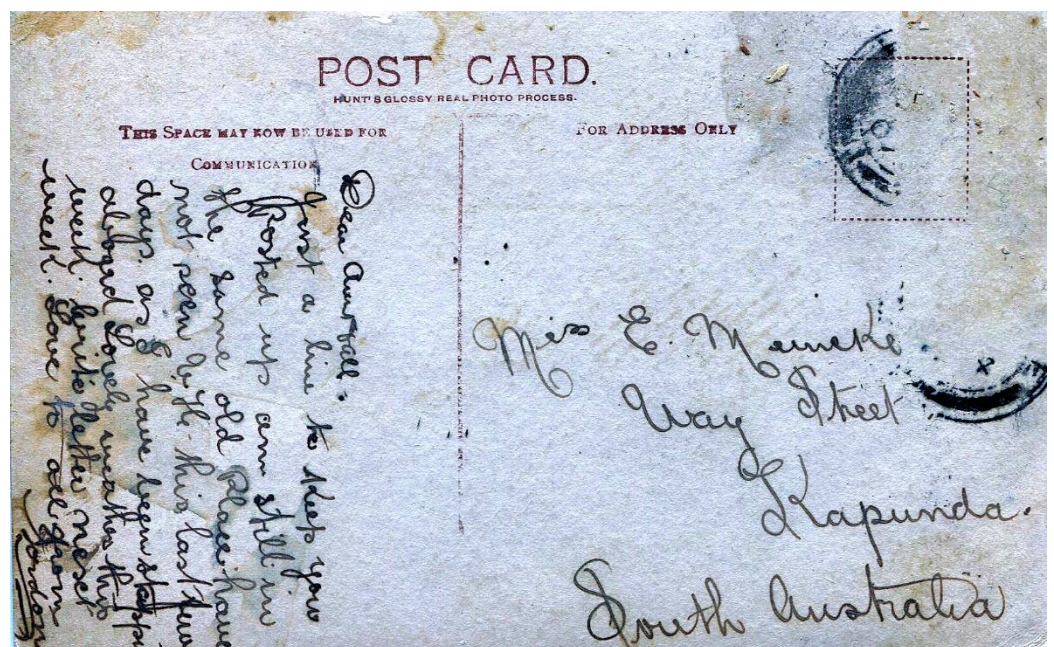 POST CARD.
HUNT'S GLOSSY REAL PHOTO PROCESS.
THIS SPACE MAY NOW BE USED FOR
COMMUNICATION
FOR ADDRESS ONLY
Dear
Just a line to keep you
Posted up am still in
the same old Place have
not seen this last few
days as I have been
aboard Lovely weather this
week write letter next
week. Love to all from
Gordon
Miss E. Meincke
Way Street
Kapunda.
South Australia